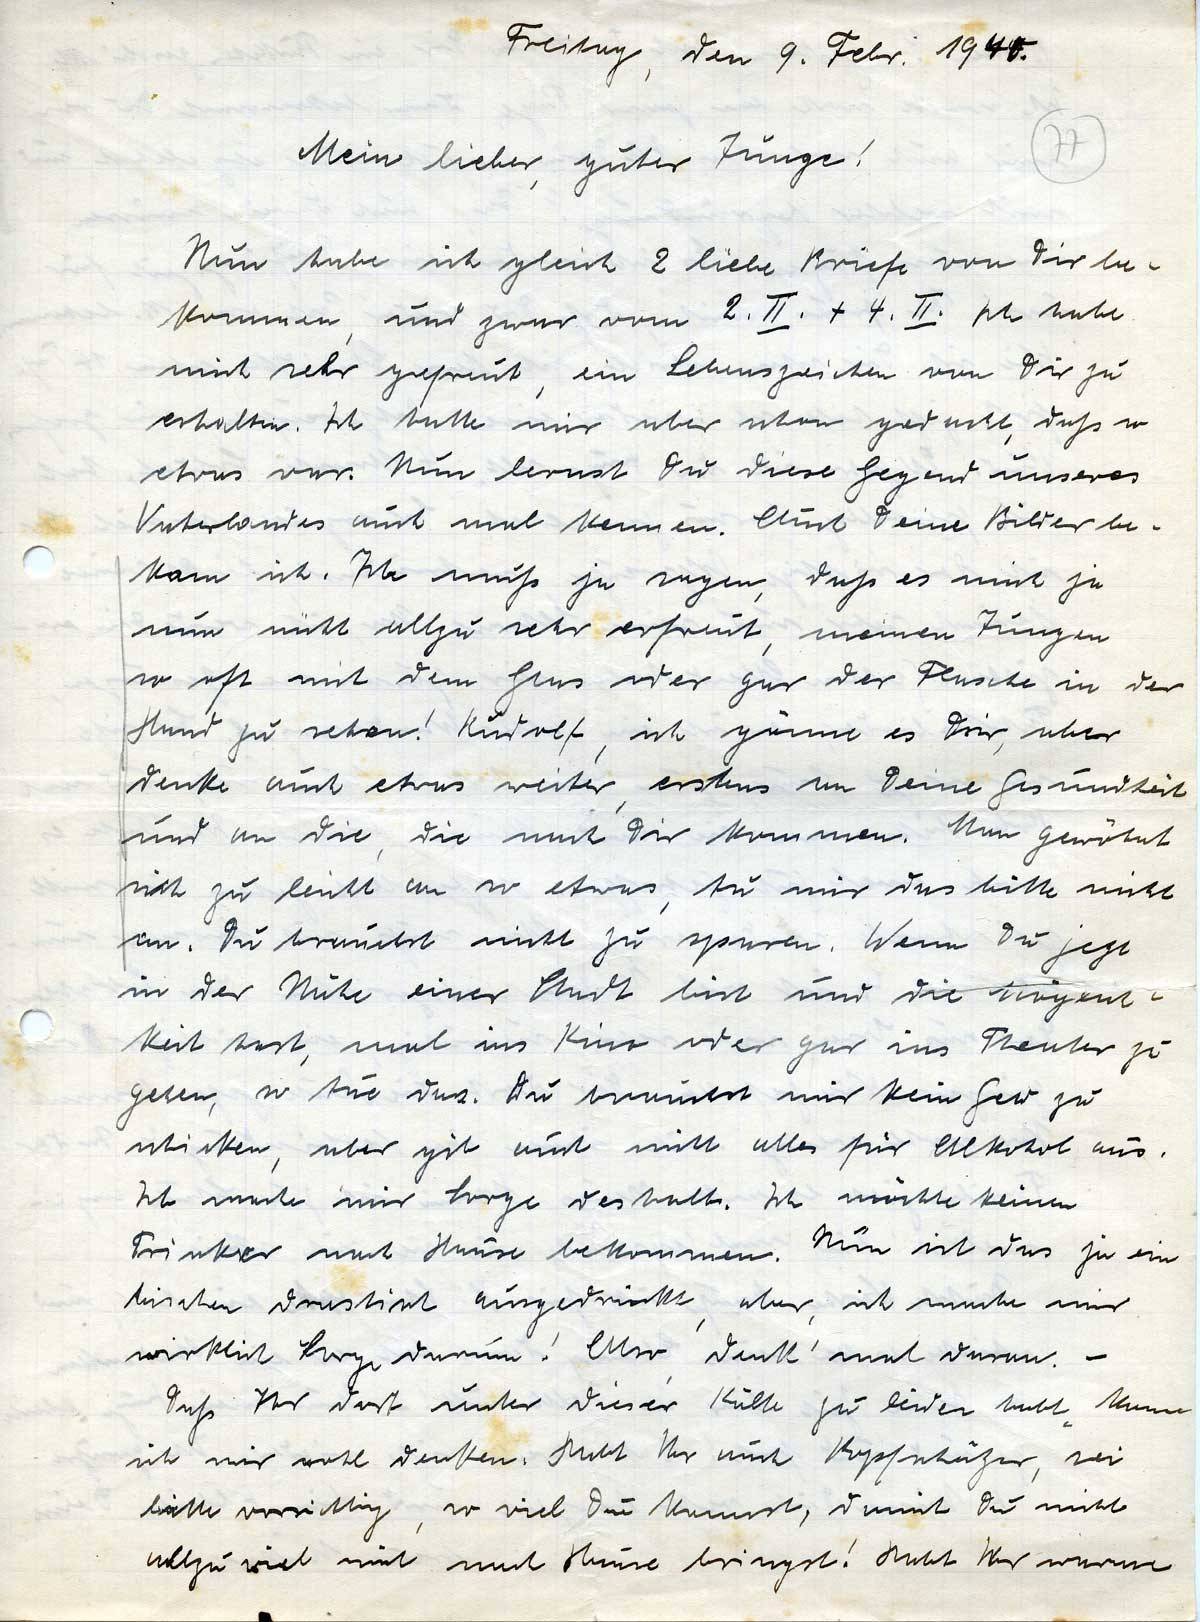 Freitag, den 9. Febr. 1940.
77
Mein lieber, guter Junge!
Nun habe ich gleich 2 liebe Briefe von Dir be-
kommen, und zwar vom 2. II. + 4. II. Ich habe
mich sehr gefreut, ein Lebenszeichen von Dir zu
erhalten. Ich hatte mir aber schon gedacht, daß so
etwas war. Nun lernst Du diese Gegend unseres
Vaterlandes auch mal kennen. Auch Deine Bilder be-
kam ich. Ich muß ja sagen, daß es mich ja
nun nicht allzu sehr erfreut, meinen Jungen
so oft mit dem Glas oder gar der Flasche in der
Hand zu sehen! Rudolf, ich gönne es Dir, aber
denke auch etwas weiter, erstens an Deine Gesundheit
und an die, die nach Dir kommen. Man gewöhnt
sich zu leicht an so etwas, tu mir das bitte nicht
an. Du brauchst nicht zu sparen. Wenn Du jetzt
in der Nähe einer Stadt bist und die Möglich-
keit hast, mal ins Kino oder gar ins Theater zu
gehen, so tue das. Du brauchst mir kein Geld zu
schicken, aber gib auch nicht alles für Alkohol aus.
Ich mache mir Sorge deshalb. Ich möchte keinen
Trinker nach Hause bekommen. Nun ist das ja ein
bischen drastisch ausgedrückt, aber, ich mache mir
wirklich Sorge darum! Also, denk' mal daran. –
Daß Ihr dort unter dieser Kälte zu leiden habt, kann
ich mir wohl denken. Habt Ihr auch Kopfschützer, sei
bitte vorsichtig, so viel Du kannst, damit Du nicht
allzu viel mit nach Hause bringst! Habt Ihr warme